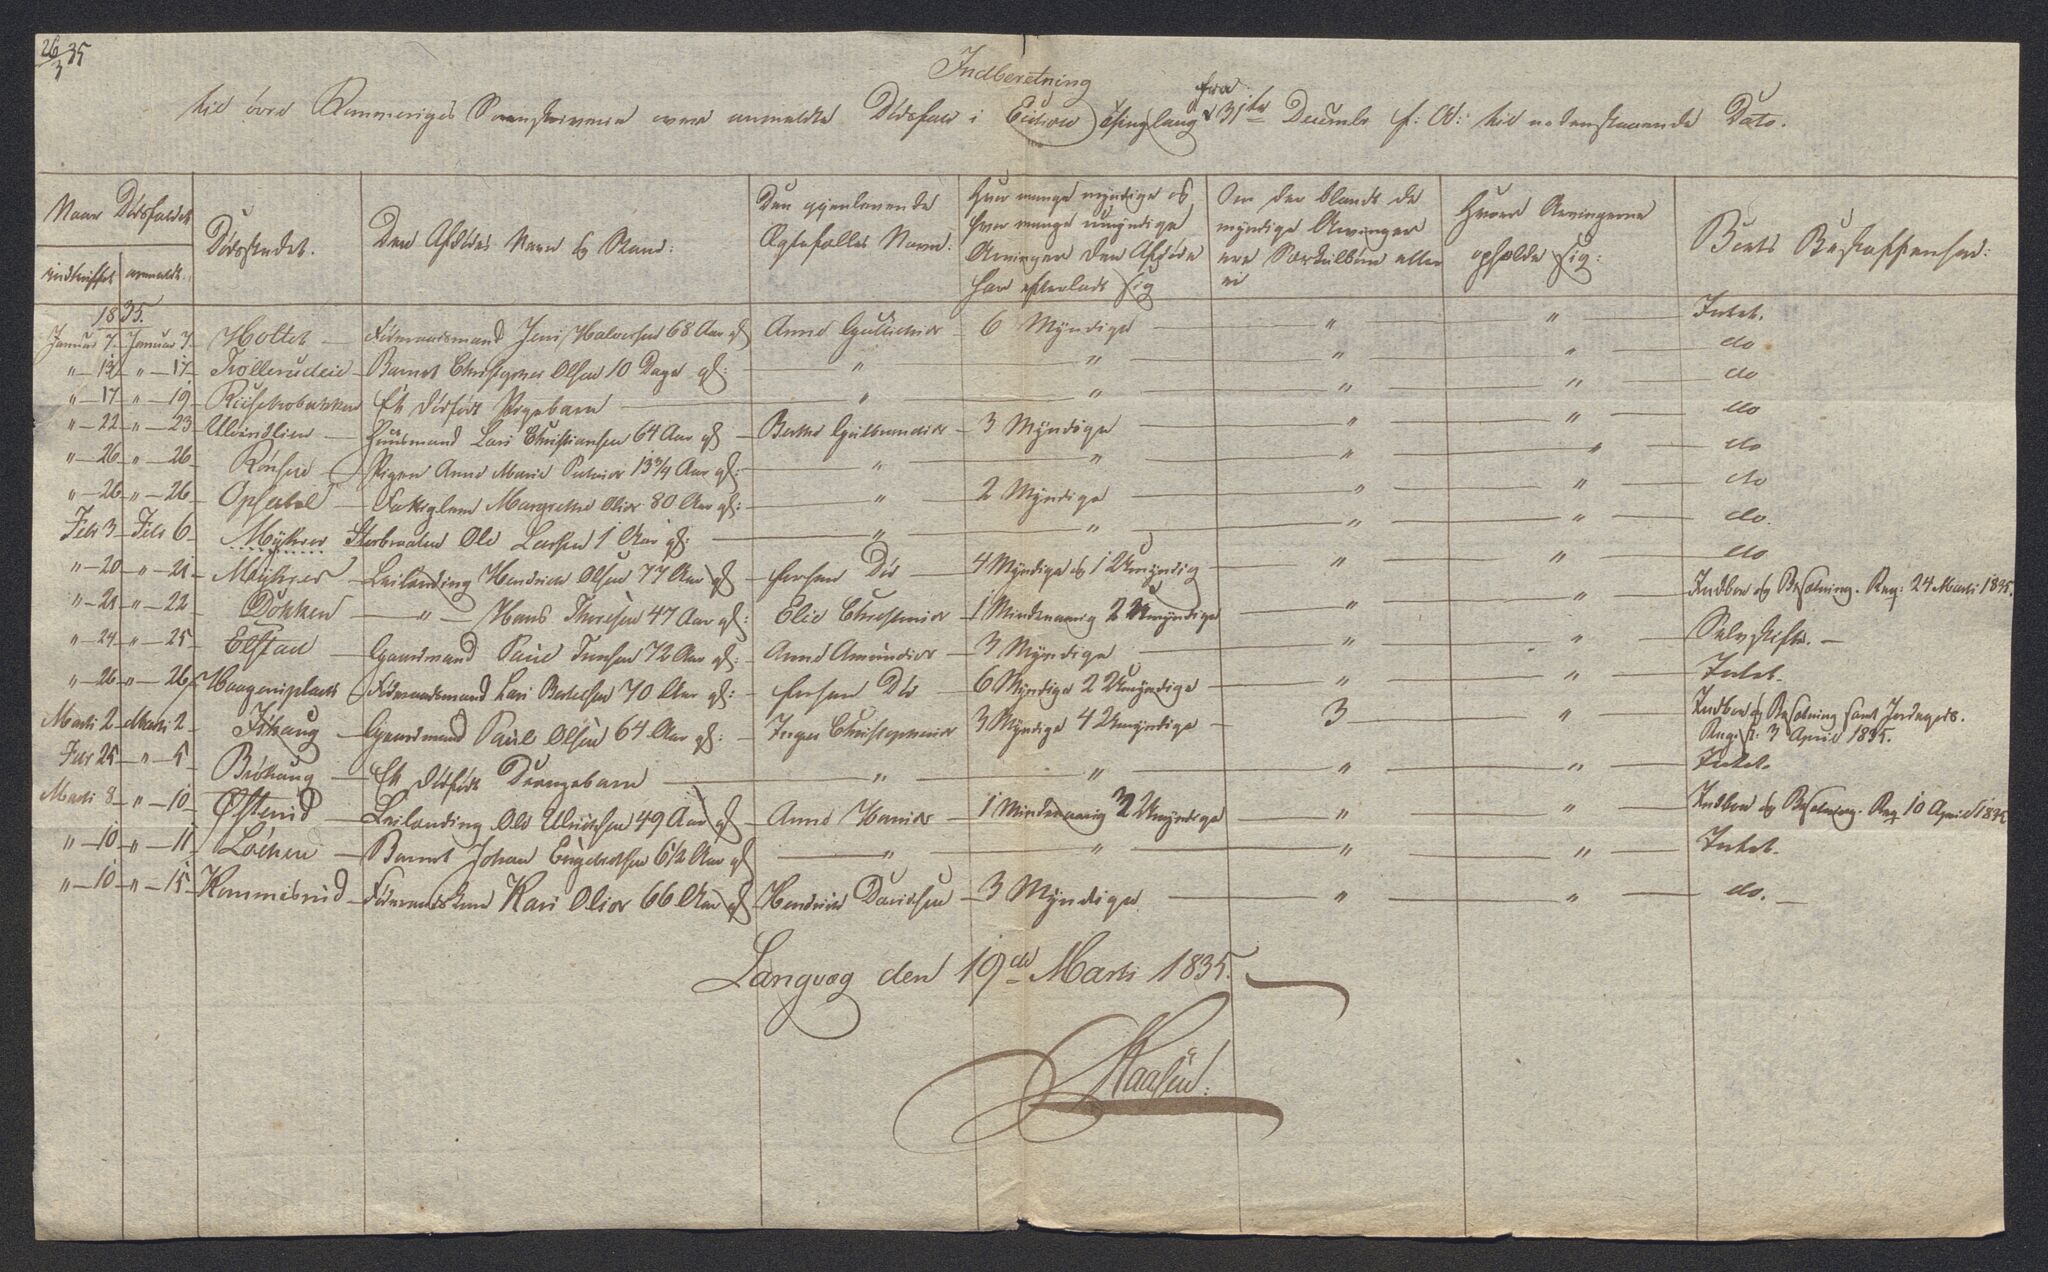 26/3 35
Indberetning
til övre Rommeriges Sorenskriverie over anmeldte Dödsfald i Eidsvold Thinglaug fra 31te Decembr f: A: til nedenstaaende Dato.
Naar Dödsfaldet
indtruffet anmeldt.
Dödsstedet.
Den Afdödes Navn og Stand:
Den gjenlevende
Ægtefælles Navn.
Hvor mange myndige og
hvor mange umyndige
Arvinger den Afdöde
har efterladt sig
Om der blandt de
myndige Arvinger
ere Særkulbörn eller
ei
Hvor Arvingerne
opholde sig:
Boets Beskaffenhed:
1835.
Januar 7. Januar 7. Holtet — Föderaadsmand Jens Halvorsen 68 Aar gl Anne — 6 Myndige — " — " — Intet.
" — 12 " — 17 Trollerudeie — Barnet Christopher Olsen 10 Dage gl: — " — " — " — " — do
" — 17 " — 19 Et dödfödt Pigebarn — " — " — " — " — do
" — 22 " — 23 — Huusmand Lars Christiansen 64 Aar gl — Berthe Gulbrandsdr — 3 Myndige — " — " — do
" — 26 " — 26 — Pigen Anne Marie 13 3/4 Aar gl: — " — " — " — " — do
" — 26 " — 26 — Opsahl — Fattiglem Margrethe Olsdr 80 Aar gl: — " — 2 Myndige — " — " — do
Febr 3 Febr 6 Myhrer Ole Larsen 1 Aar gl: — " — " — " — " — do.
" — 20 " — 21 — Myhrer — Leilending Hendrich Olsen 77 Aar gl — forhen Död — 4 Myndige og 1 Umyndig — " — " — do
" — 21 " — 22 Dokken — " — Hans Thoresen 47 Aar gl: Elie Christensdr — 1 Mindreaarig 2 Umyndige — " — " — Indboe og Besætning. Reg: 24 Marti 1835.
" — 24 " — 25 — Elstad — Gaardmand Paul Jensen 72 Aar gl: — Anne Amundsdr — 3 Myndige — " — " — Selvskifte. —
" — 26 " — 26 Haagensplads — Föderaadsmand Lars 70 Aar gl: — forhen Död — 6 Myndige 2 Umyndige — " — " — Intet.
Marti 2 Marti 2 — Gaardmand Paul Olsen 64 Aar gl: — Inger Christophersdr 3 Myndige 4 Umyndige — 3 — " — Indboe og Besætning samt Jordegods.
Reg: d: 3 April 1835.
Febr 25 " — 5 — Bröhaug — Et dödfödt Drengebarn — " — " — " — " — Intet.
Marti 8 " — 10 — Leilending Ole 49 Aar gl — Anne Hansdr — 1 Mindreaarig 2 Umyndige — " — " — Indboe og Besætning. Reg 10 April 1835
" — 10 " — 11 — Barnet Johan Engebretsen 6 1/2 Aar gl — " — " — " — " — Intet.
" — 10 " — 15 Hommerud — Föderaadskone Kari Olsdr 66 Aar gl — Hendrich Davidsen — 3 Myndige — " — " — do. —
Langvog den 19de Marti 1835.